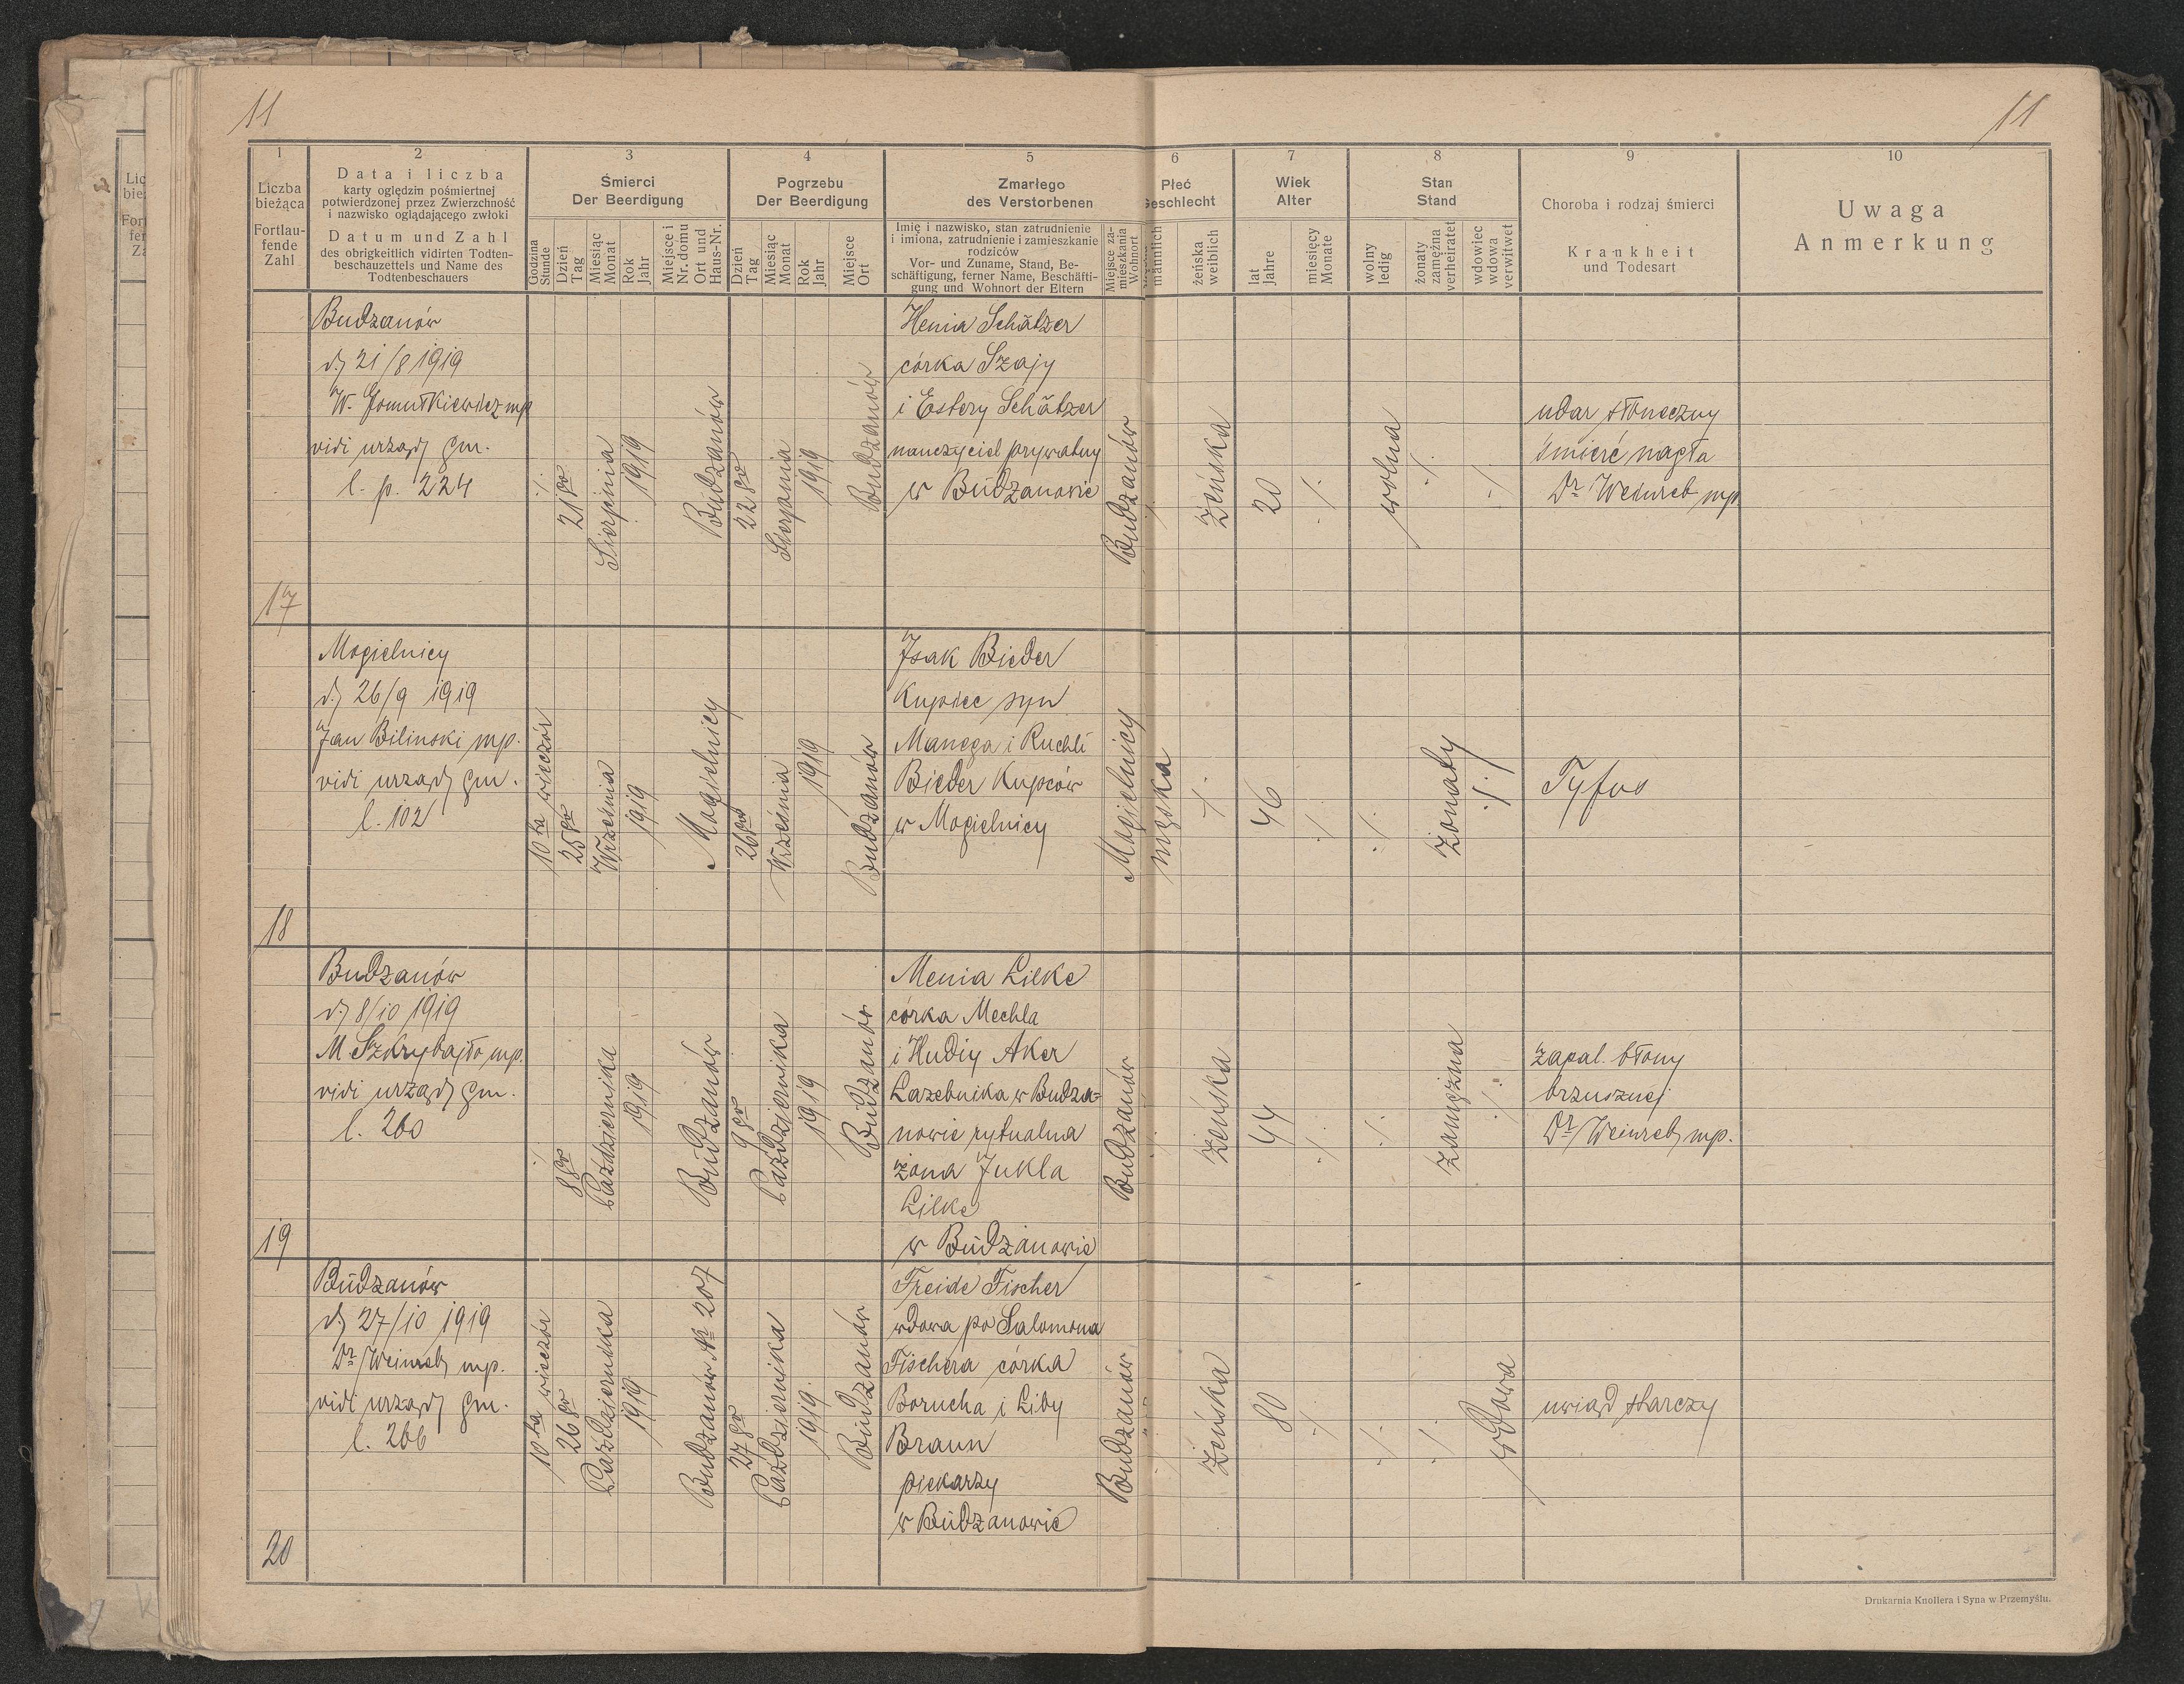 11
11
1
2
3
4
5
6
7
8
9
10
Liczba bieżąca
Fortlaufende Zahl
Data i liczba
karty oględzin pośmiertnej
potwierdzonej przez Zwierzchność
i nazwisko oglądającego zwłoki
Datum und Zahl
des obrigkeitlich vidirten Todten-
beschauzettels und Name des
Todtenbeschauers
Śmierci
Der Beerdigung
Godzina
Stunde
Dzień
Tag
Miesiąc
Monat
Rok
Jahr
Miejsce i
Nr. domu
Ort und
Haus-Nr.
Pogrzebu
Der Beerdigung
Dzień
Tag
Miesiąc
Monat
Rok
Jahr
Miejsce
Ort
Zmarłego
des Verstorbenen
Imię i nazwisko, stan zatrudnienie
i imiona, zatrudnienie i zamieszkanie
rodziców
Vor- und Zuname, Stand, Be-
schäftigung, ferner Name, Beschäfti-
gung und Wohnort der Eltern
Miejsce za-
mieszkania
Wohnort
Płeć
Geschlecht
männlich
żeńska
weiblich
Wiek
Alter
lat
Jahre
miesięcy
Monate
Stan
Stand
wolny
ledig
żonaty
zamężna
verheiratet
wdowiec
wdowa
verwitwet
Choroba i rodzaj śmierci
Krankheit
und Todesart
Uwaga
Anmerkung
17
Budzanów
d) 21/8 1919
W. Gomułkiewicz mp
vidi urząd gm.
l. p. 224
·/·
21go
Sierpnia
1919
Budzanów
22go
Sierpnia
1919
Budzanów
Henia Schätzer
córka Szajy
i Estery Schätzer
nauczyciel prywatny
w Budzanowie
Budzanów
żeńska
20
·/·
wolna
·/·
·/·
udar słoneczny
śmierć nagła
Dr Weinreb mp.
18
Mogielnicy
d) 26/9 1919
Jan Bilinski mp.
vidi urząd gm.
l. 102
10ta wieczór
25go
Września
1919
Mogielnicy
26go
Września
1919
Budzanów
Isak Bieder
Kupiec syn
Manega i Ruchli
Bieder Kupców
w Mogielnicy
Mogielnicy
męska
·/·
46
·/·
·/·
żonaty
·/·
Tyfus
19
Budzanów
d) 8/10 1919
M. Szkrybajło mp.
vidi urząd gm.
l. 260
·/·
8go
Października
1919
Budzanów
9go
Października
1919
Budzanów
Menia Lilke
córka Mechla
i Hudiy Aker
Łazebnika w Budza=
nowie rytualna
żona Jukla
Lilke
w Budzanowie
Budzanów
·/·
żeńska
44
·/·
·/·
zamężna
·/·
zapal. błony
brzusznej
Dr Weinreb mp.
20
Budzanów
d) 27/10 1919
Dr Weinreb mp.
vidi urząd gm.
l. 266
10ta wieczór
26go
Października
1919
Budzanów Nr 207
27go
Października
1919.
Budzanów
Freide Fischer
wdowa po Salomona
Fischera córka
Borucha i Liby
Braun
piekarzy
w Budzanowie
Budzanów
żeńska
80
·/·
·/·
·/·
wdowa
uwiąd starczy
Drukarnia Knollera i Syna w Przemyślu.